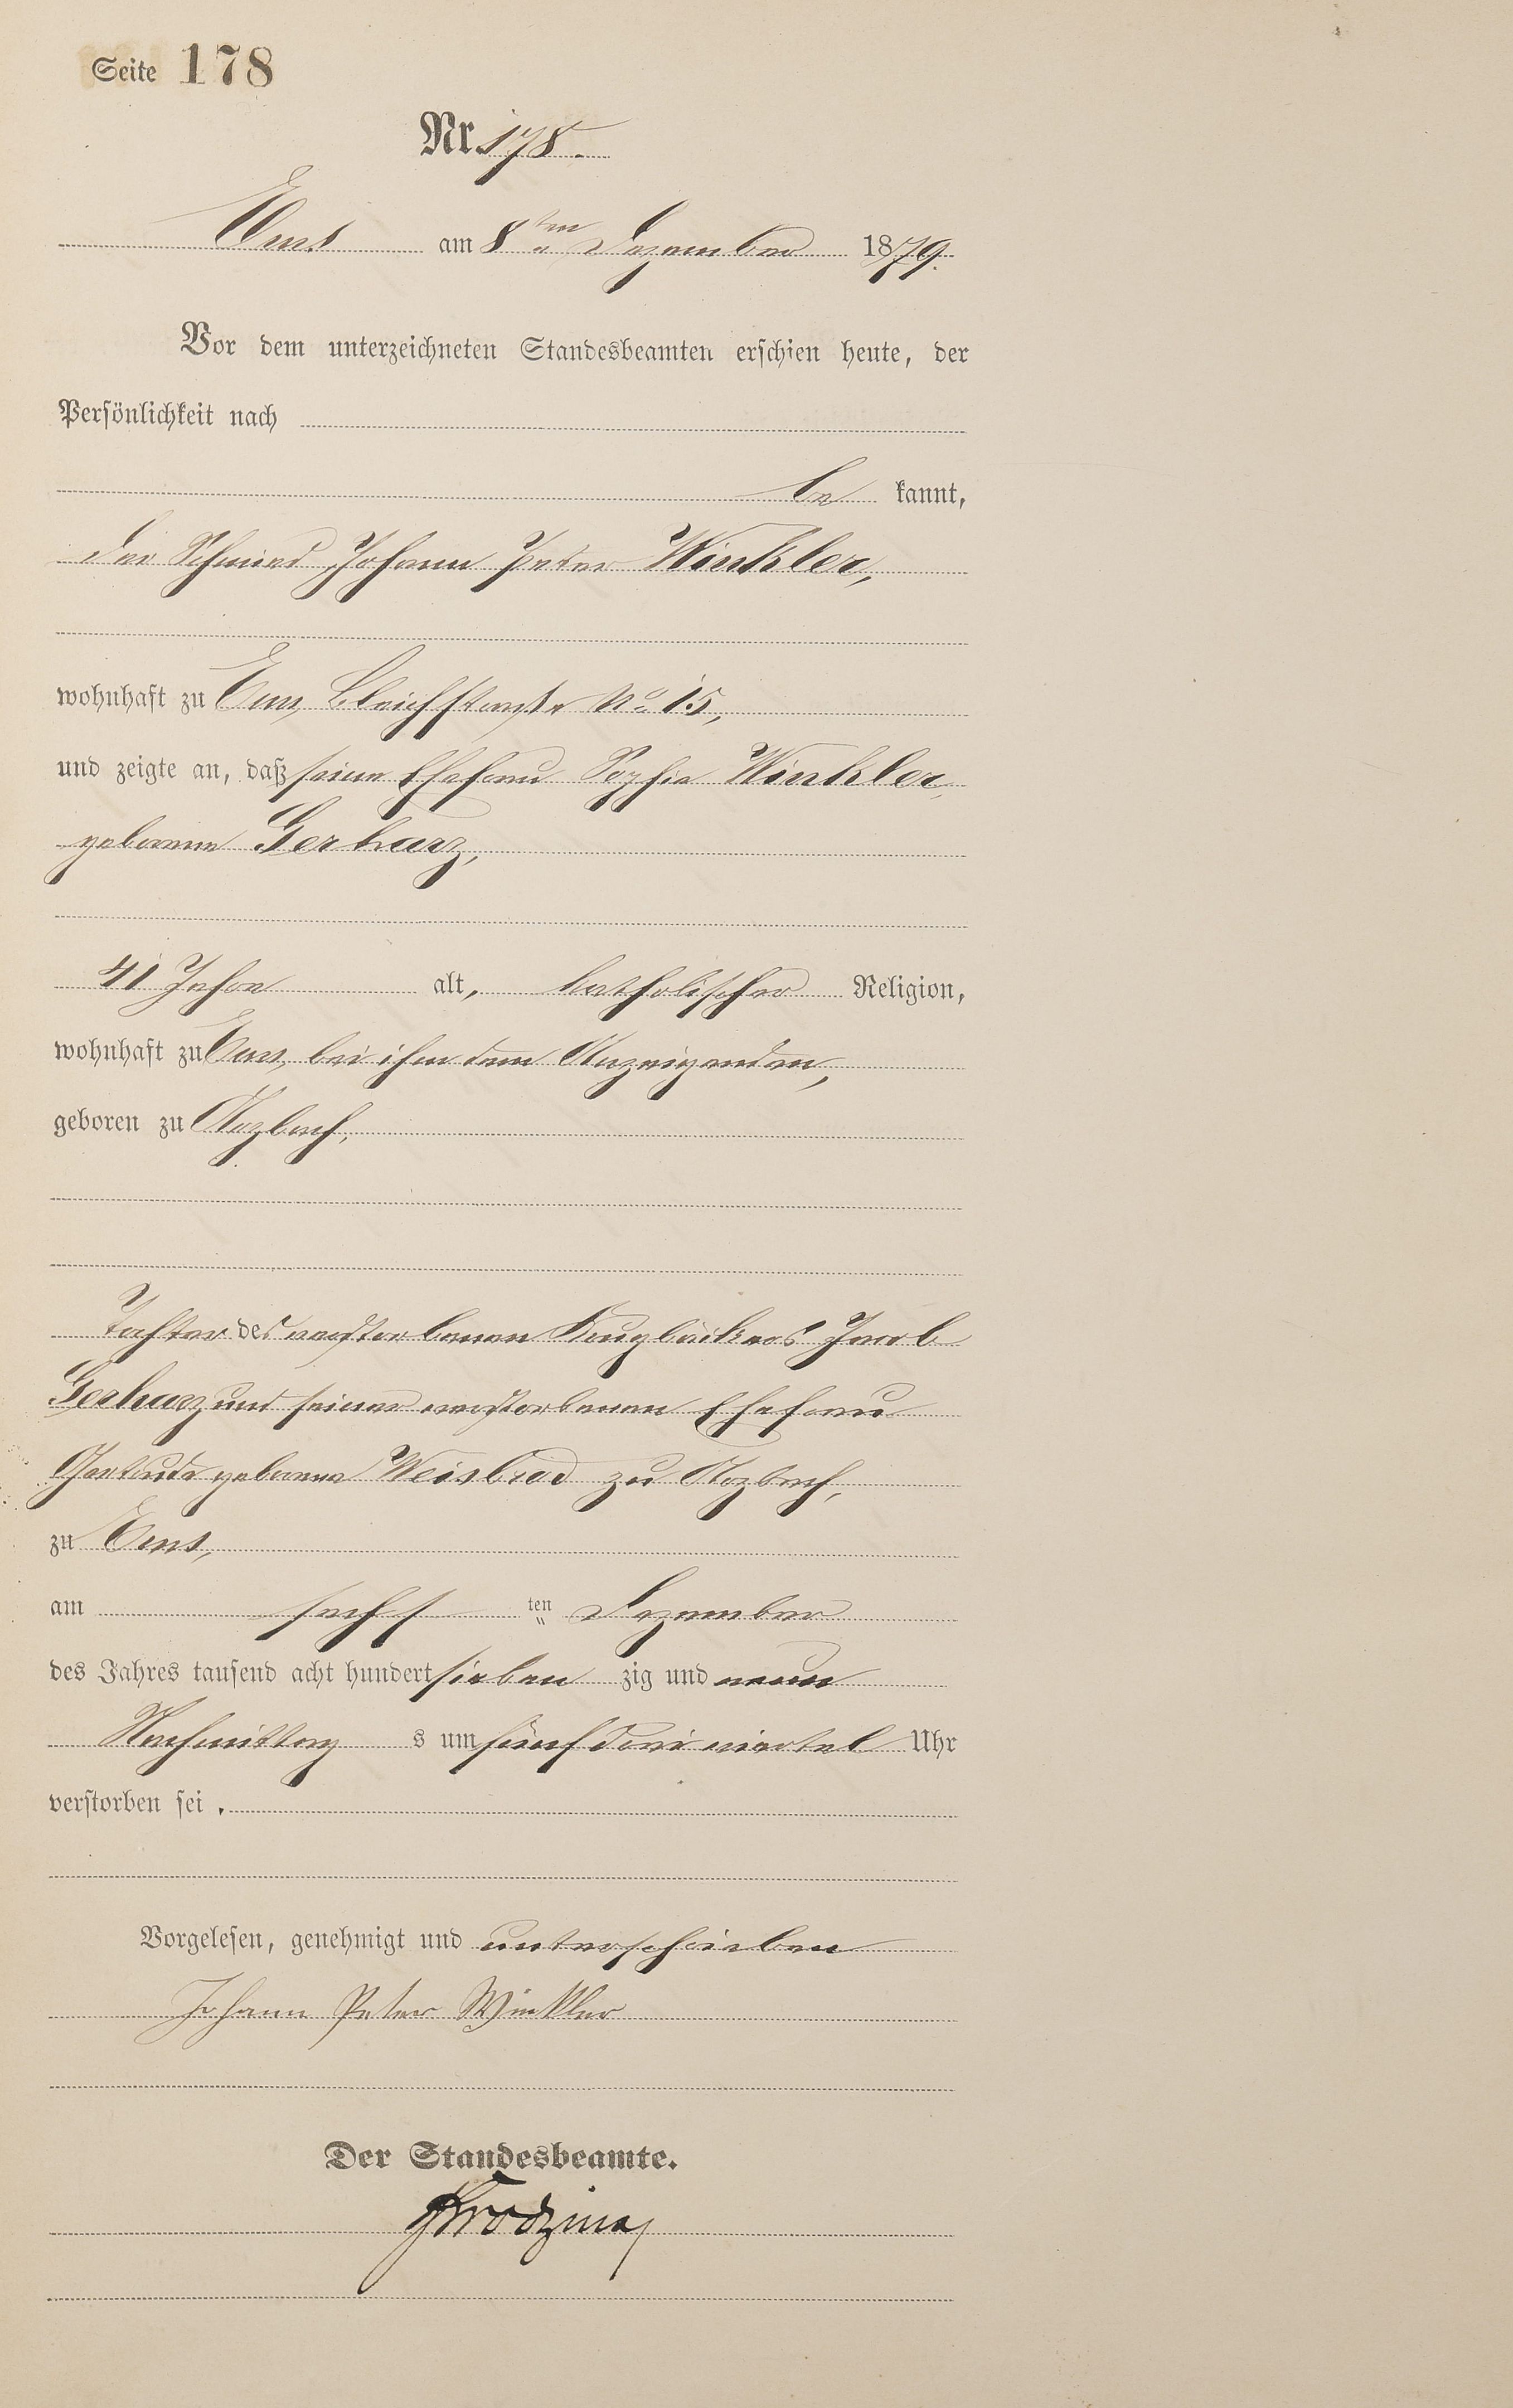 Seite 178
Nr. 178.
Ems am 8ten Dezember 1879.
Vor dem unterzeichneten Standesbeamten erschien heute, der
Persönlichkeit nach
be kannt,
der Schmied Johann Peter Winkler,
wohnhaft zu Ems, Bleichstraße No. 15,
und zeigte an, daß seine Ehefrau Sophie Winkler,
geborene Gerharz,
41 Jahre alt, katholischer Religion,
wohnhaft zu Ems, bei ihm dem Anzeigenden,
geboren zu
Tochter des verstorbenen Krugbäckers Jacob
Gerharz und seiner verstorbenen Ehefrau
Gertrude geborene Weisbrod zu
zu Ems,
am sechs ten Dezember
des Jahres tausend acht hundert sieben zig und neun
Nachmittag s um fünf drei viertel Uhr
verstorben sei .
Vorgelesen, genehmigt und unterschrieben
Johann Peter Winkler
Der Standesbeamte.